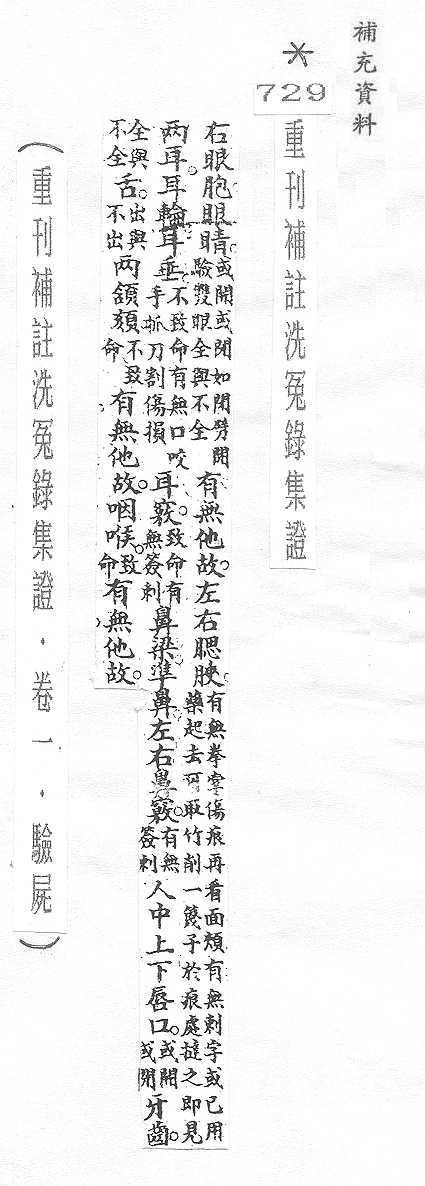 補充資料
＊
729
重刊補註洗冤錄集證
右眼胞眼睛。或開或閉如閉劈開驗雙眼全與不全有無他故。左右腮脥。有無拳掌傷痕再看面頰有無刺字或已用藥起去可取竹削一篾子於痕處撻之即見
两耳耳輪耳垂不致命有無口咬手抓刀割傷損耳竅。致命有無簽刺鼻梁準鼻左右鼻竅。有無簽刺人中上下唇口。或開或閉牙齒。
全與不全舌。出與不出两頷頦不致命有無他故。咽喉。致命有無他故。
（重刊補註洗冤錄集證．卷一．驗屍）